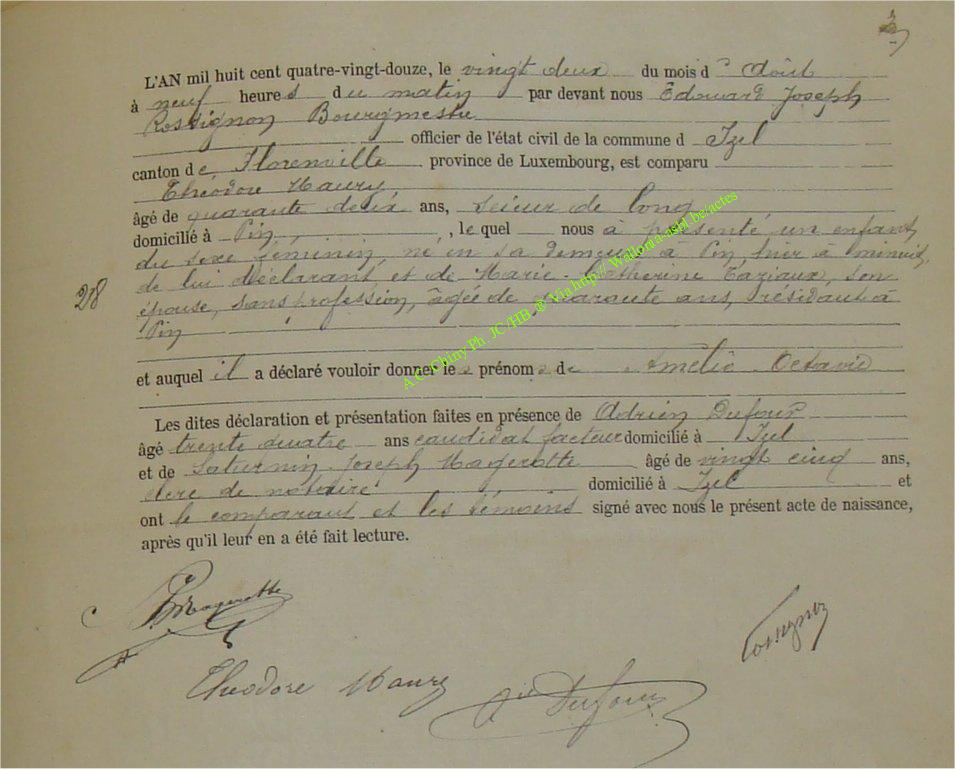 L'AN mil huit cent quatre-vingt-douze, le vingt deux du mois d' Août
à neuf heures du matin par devant nous Edouard Joseph
Rossignon Bourgmestre
officier de l'état civil de la commune d Izel
canton de Florenville province de Luxembourg, est comparu
Théodore Maury,
âgé de quarante deux ans, scieur de long
domicilié à Pin, , le quel nous a présenté un enfant
du sexe féminin, né en sa demeure à Pin, hier à minuit,
28
de lui déclarant et de Marie-Catherine Taziaux, son
épouse, sans profession, âgée de quarante ans, résidant à
Pin
et auquel il a déclaré vouloir donner les prénoms de Amélie Octavie
Les dites déclaration et présentation faites en présence de Adrien Dufour
âgé trente quatre ans candidat facteur domicilié à Izel
et de Saturnin Joseph Magerotte âgé de vingt cinq ans,
clerc de notaire domicilié à Izel et
ont le comparant et les témoins signé avec nous le présent acte de naissance,
après qu'il leur en a été fait lecture.
Magerotte
Rossignon
Théodore Maury
Dufour
A.C. Chiny Ph. JC/HB @ Via http://Wallonia-asbl.be/actes